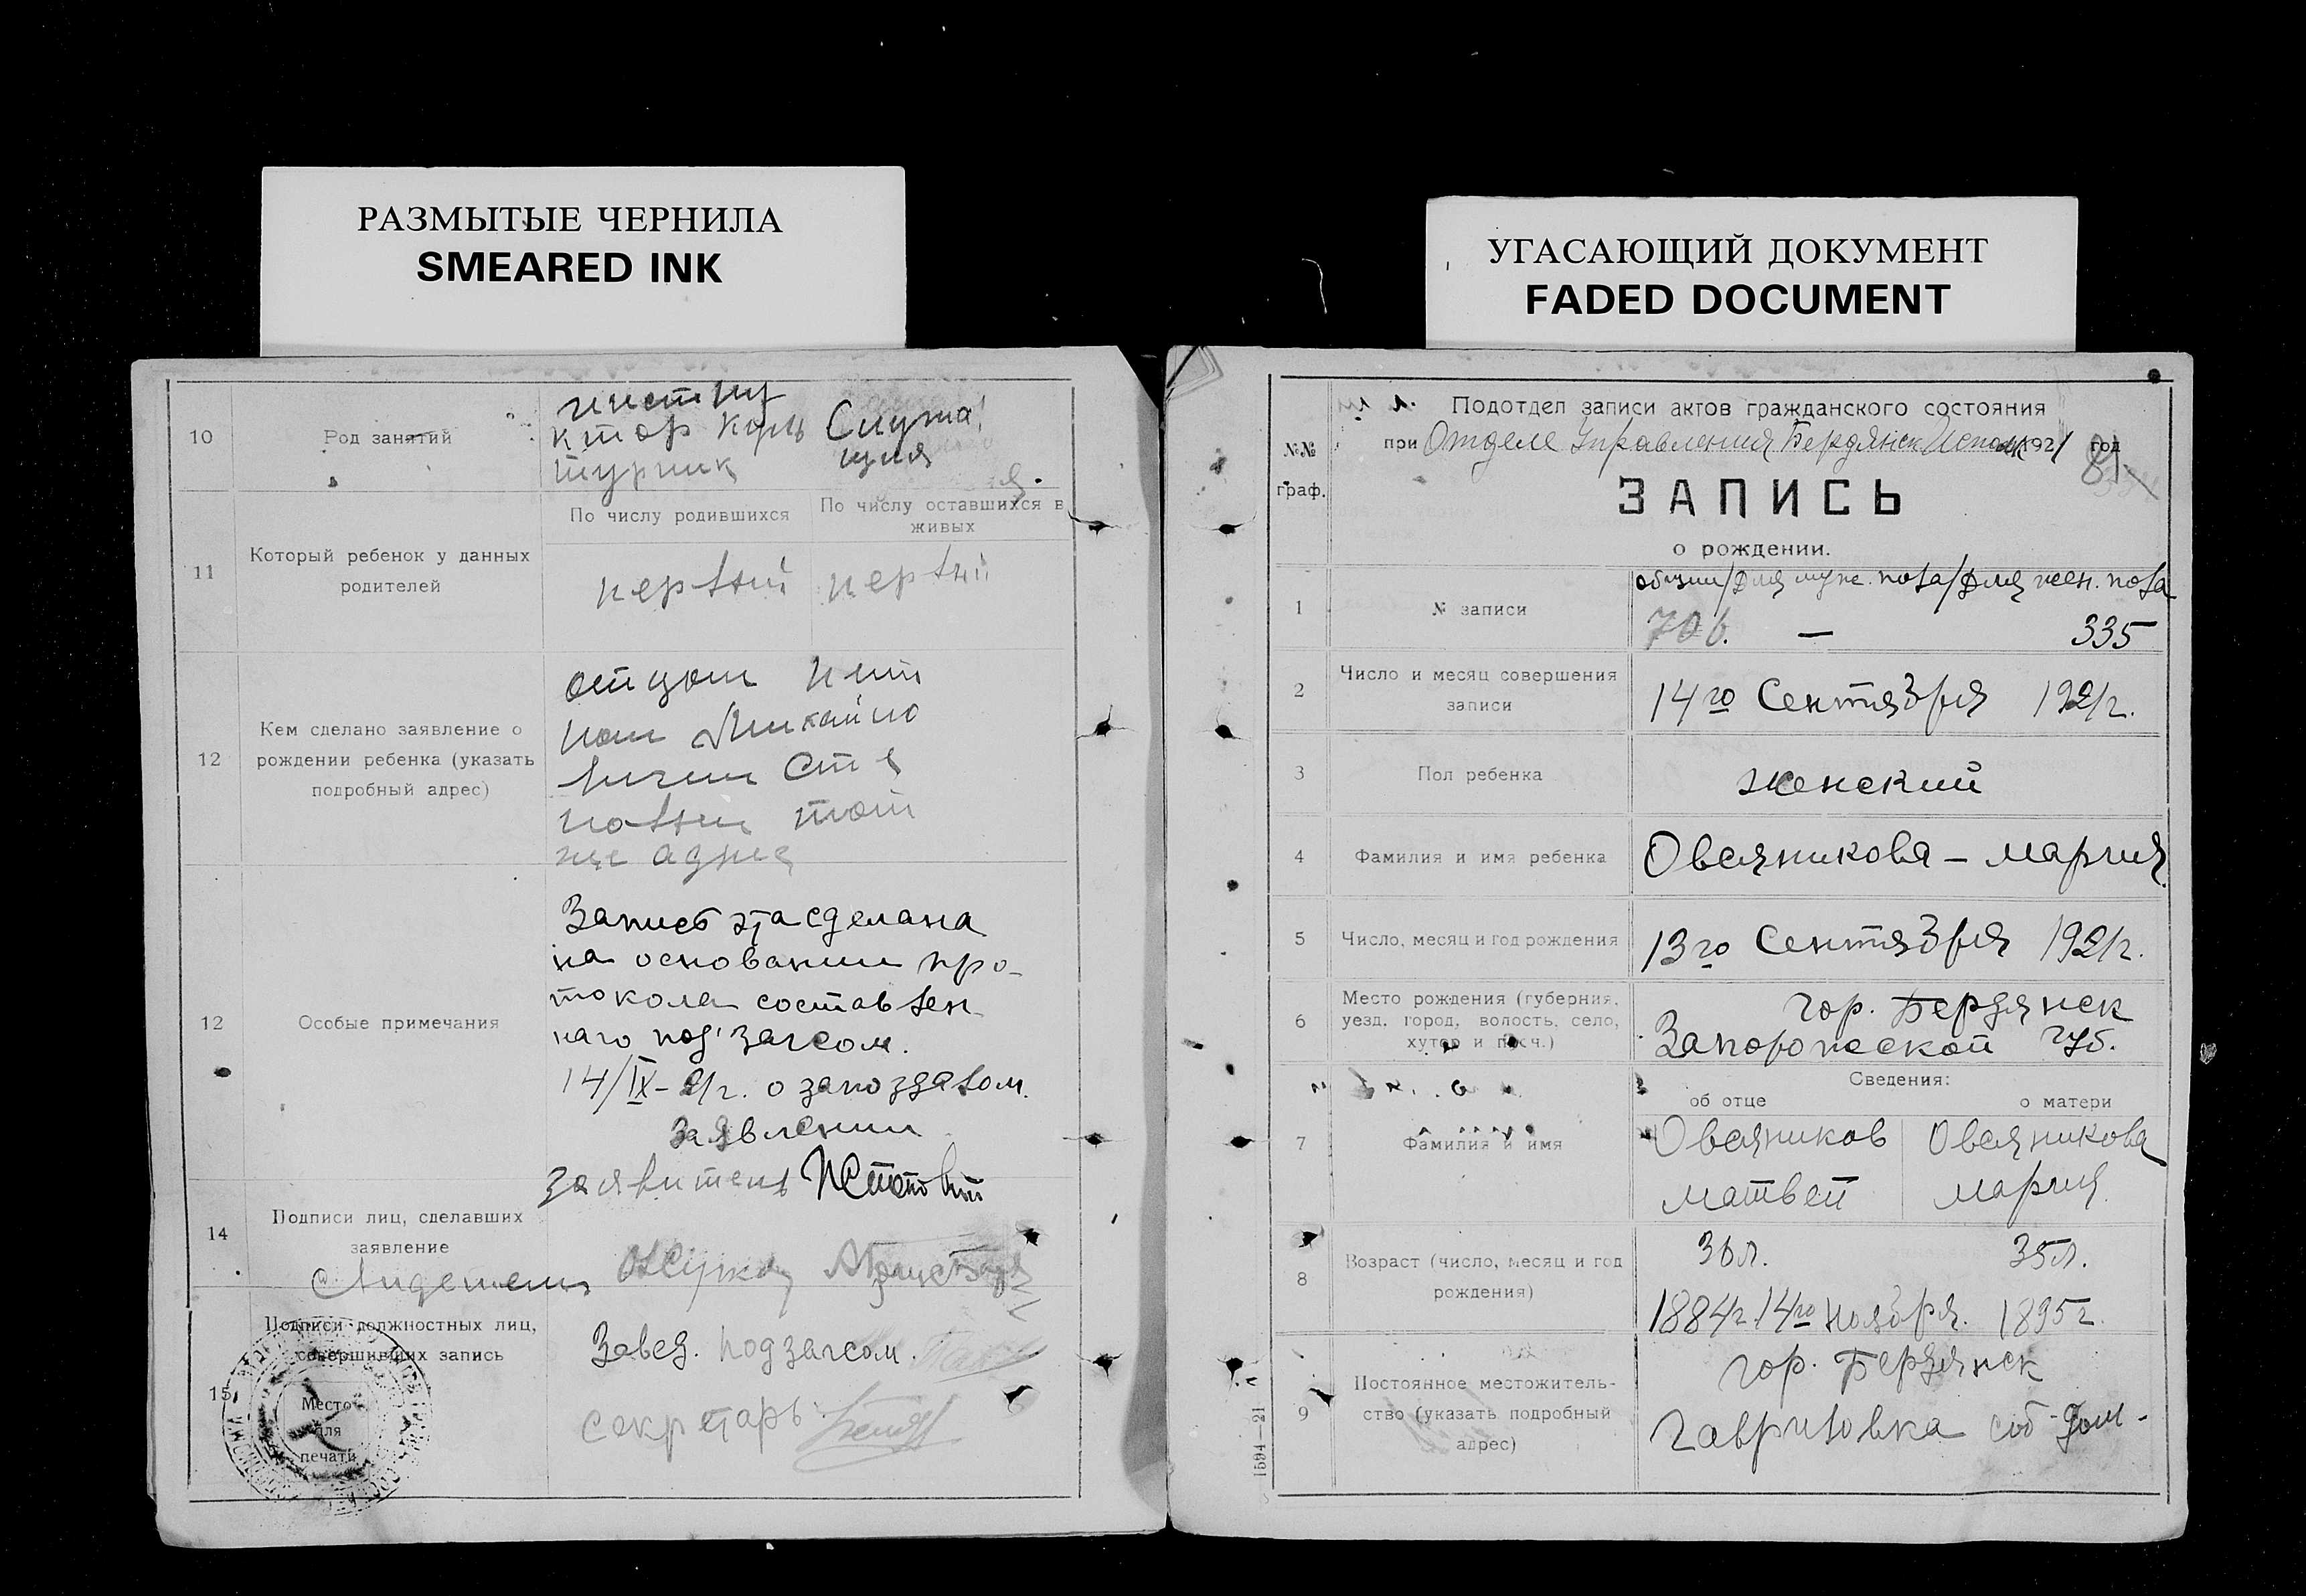 РАЗМЫТЫЕ ЧЕРНИЛА
SMEARED INK
УГАСАЮЩИЙ ДОКУМЕНТ
FADED DOCUMENT
10
Род занятий
инстру
ктор куль
турник
Служа
щая
11
Который ребенок у данных
родителей
По числу родившихся
По числу оставшихся в
живых
первый
первый
12
Кем сделано заявление о
рождении ребенка (указать
подробный адрес)
отцом
Михайло
вичем Сте
повым той
же адрес
12
Особые примечания
Запись эта сделана
на основании про-
токола составлен
наго под'загсом.
14/IX-21г. о запоздалом
заявлении
заявитель
14
Подписи лиц, сделавших
заявление
Свидетели
15
Подписи должностных лиц,
совершивших запись
Место
для
печати
Завед. подзагсом.
секретарь
№№
граф.
Подотдел записи актов гражданского состояния
при Отделе Управления Бердянск Исполк 1921 год
81
ЗАПИСЬ
о рождении.
1
№ записи
общий/для муж. пола/для жен. пола
706. — 335
2
Число и месяц совершения
записи
14го Сентября 1921г.
3
Пол ребенка
женский
4
Фамилия и имя ребенка
Овсяникова – Мария
5
Число, месяц и год рождения
13го Сентября 1921г.
6
Место рождения (губерния,
уезд, город, волость, село,
хутор и проч.)
гор. Бердянск
Запорожской губ.
7
Фамилия и имя
Сведения:
об отце
о матери
Овсяников
Матвей
Овсяникова
Мария
8
Возраст (число, месяц и год
рождения)
36л.
35л.
1884г. 14го ноября. 1895г.
9
Постоянное местожитель-
ство (указать подробный
адрес)
гор. Бердянск
Гавриловка соб-дом-
1594—21